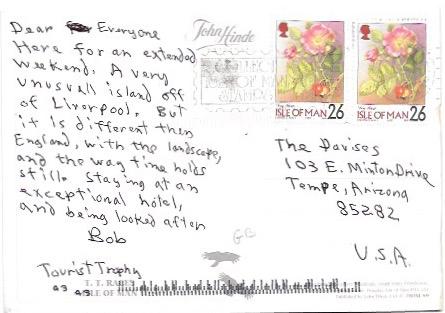 Dear Everyone
Here for an extended
weekend. A very
unusual island off
of Liverpool. But
it is different then
England, with the landscape,
and the way time holds
still. Staying at an
exceptional hotel,
and being looked after
Bob
Tourist Trophy
T. T. RACES
ISLE OF MAN
John Hinde
COLLECT
ISLE OF MAN
STAMPS
ISLE OF MAN 26
ISLE OF MAN 26
The Davises
103 E. Minton Drive
Tempe, Arizona
85282
U.S.A.
GB